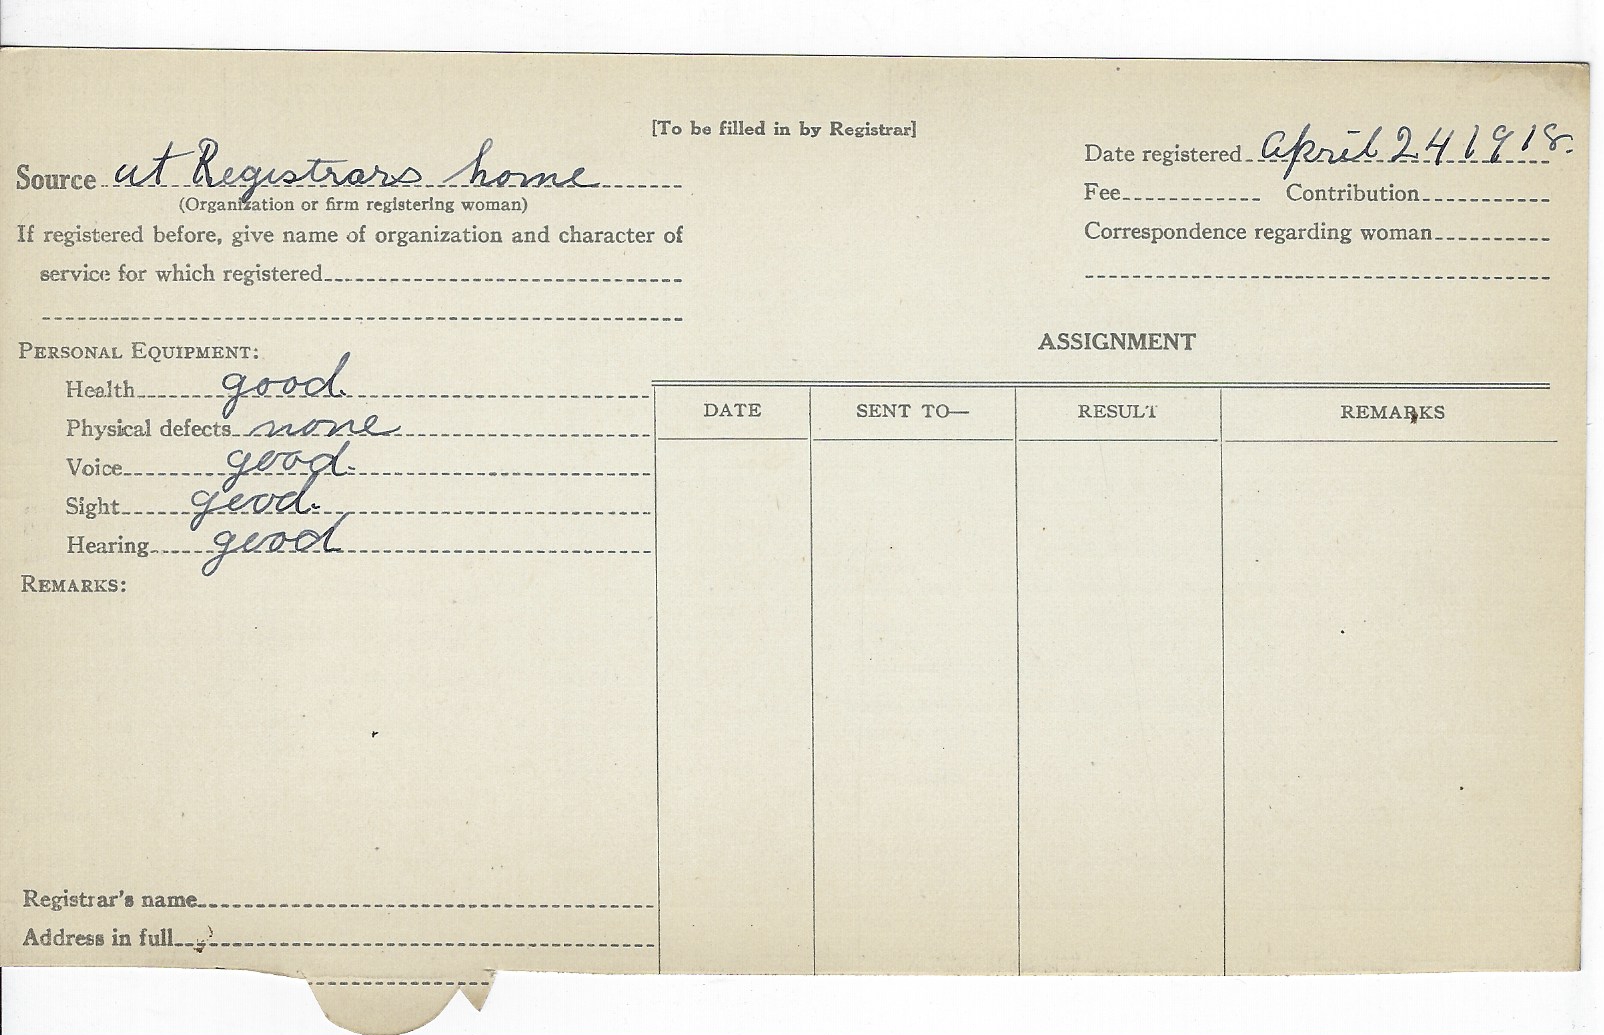 [To be filled in by Registrar]
Source at Registrars home
(Organization or firm registering woman)
If registered before, give name of organization and character of
service for which registered
Date registered April 24 1918.
Fee Contribution
Correspondence regarding woman
PERSONAL EQUIPMENT:
Health good.
Physical defects none
Voice good.
Sight good.
Hearing good
REMARKS:
Registrar's name
Address in full
ASSIGNMENT
DATE SENT TO— RESULT REMARKS